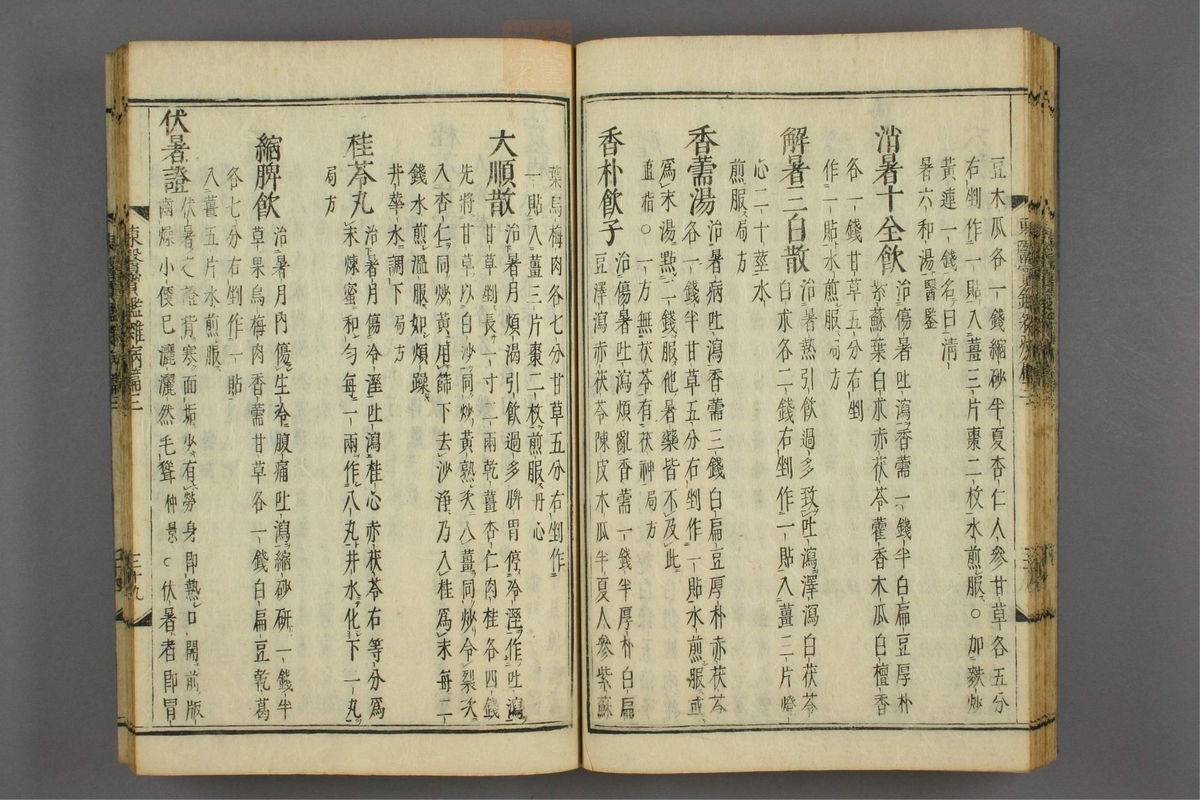 豆木瓜各一錢縮砂半夏杏仁人參甘草各五分
右剉作一貼入薑三片棗二枚水煎服○加麩炒
黃連一錢名曰清
暑六和湯醫鑒
消暑十全飮 治傷暑吐瀉香薷一錢半白扁豆厚朴
紫蘇葉白朮赤茯苓藿香木瓜白檀香
各一錢甘草五分右剉
作一貼水煎服局方
解暑三白散 治暑熱引飮過多致吐瀉澤瀉白茯苓
白朮各二錢右剉作一貼入薑三片燈
心二十莖水
煎服局方
香薷湯 治暑病吐瀉香薷三錢白扁豆厚朴赤茯苓
各一錢半甘草五分右剉作一貼水煎服或
爲末湯點一錢服他暑藥皆不及此
直指○一方無茯苓有茯神局方
香朴飮子 治傷暑吐瀉煩亂香薷一錢半厚朴白扁
豆澤瀉赤茯苓陳皮木瓜半夏人參紫蘇
葉烏梅肉各七分甘草五分右剉作
一貼入薑三片棗二枚煎服丹心
大順散 治暑月煩渴引飮過多脾胃停冷溼作吐瀉
甘草剉長一寸二兩乾薑杏仁肉桂各四錢
先將甘草以白沙同炒黃熟次入薑同炒令裂次
入杏仁同炒黃用篩下去沙淨乃入桂爲末每二
錢水煎溫服如煩躁
井華水調下局方
桂苓丸 治暑月傷冷溼吐瀉桂心赤茯苓右等分爲
末煉蜜和勻每一兩作八丸井水化下一丸
局方
縮脾飮 治暑月內傷生冷腹痛吐瀉縮砂硏一錢半
草果烏梅肉香薷甘草各一錢白扁豆乾葛
各七分右剉作一貼
入薑五片水煎服
伏暑證 伏暑之證背寒面垢少有勞身卽熱口開前版
齒燥小便已灑灑然毛聳仲景○伏暑者卽冒
東醫寶鑑雜病篇三
三十九